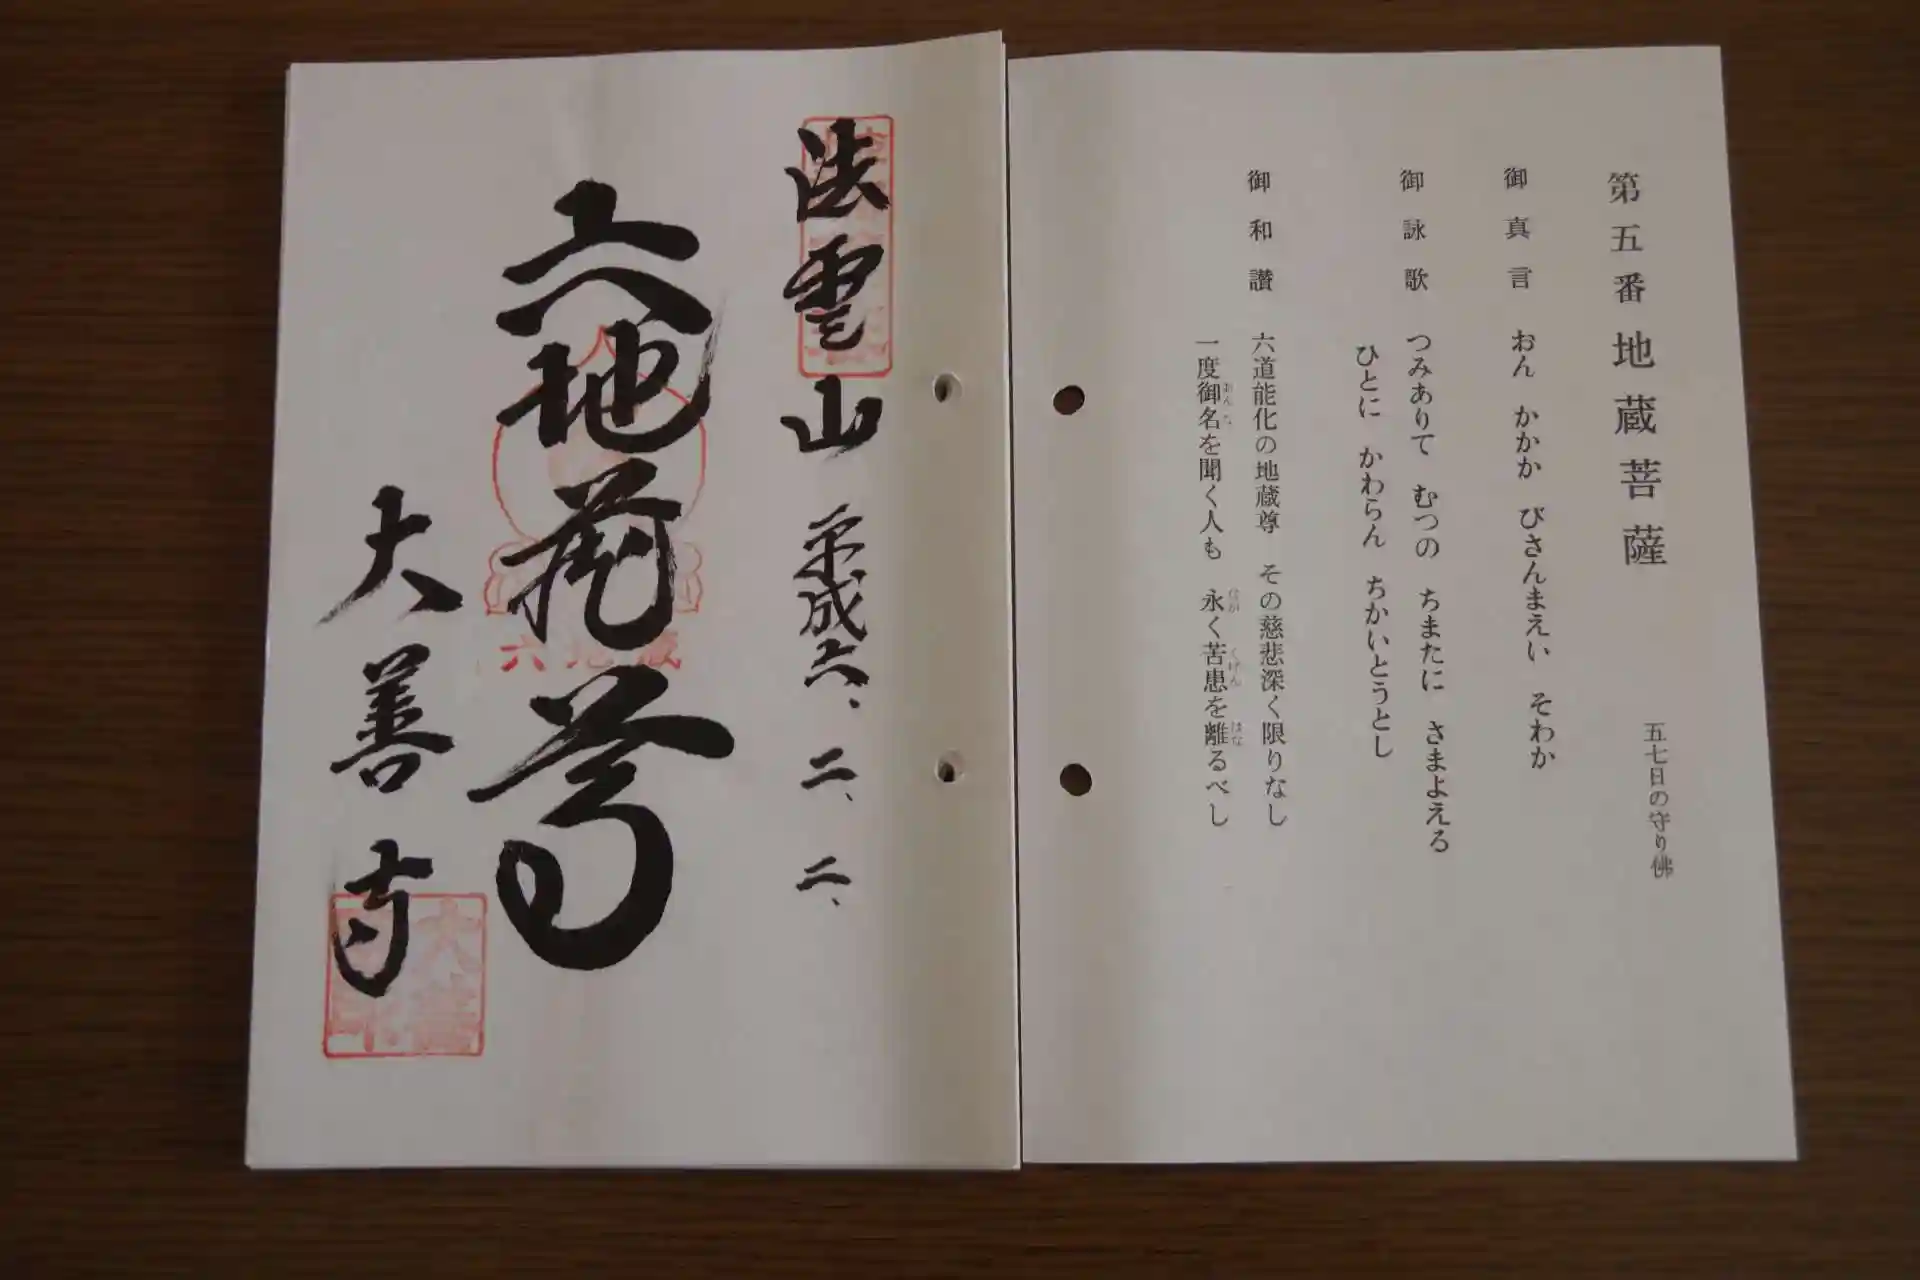 第五番 地蔵菩薩
五七日の守り佛
御真言 おん かかか びさんまえい そわか
御詠歌 つみありて むつの ちまたに さまよえる
ひとに かわらん ちかいとうとし
御和讃 六道能化の地蔵尊 その慈悲深く限りなし
一度御名を聞く人も 永く苦患を離るべし
おんな
なが
くげん
はな
法雲山
平成六、二、二、
六地蔵尊
六地蔵
大善寺